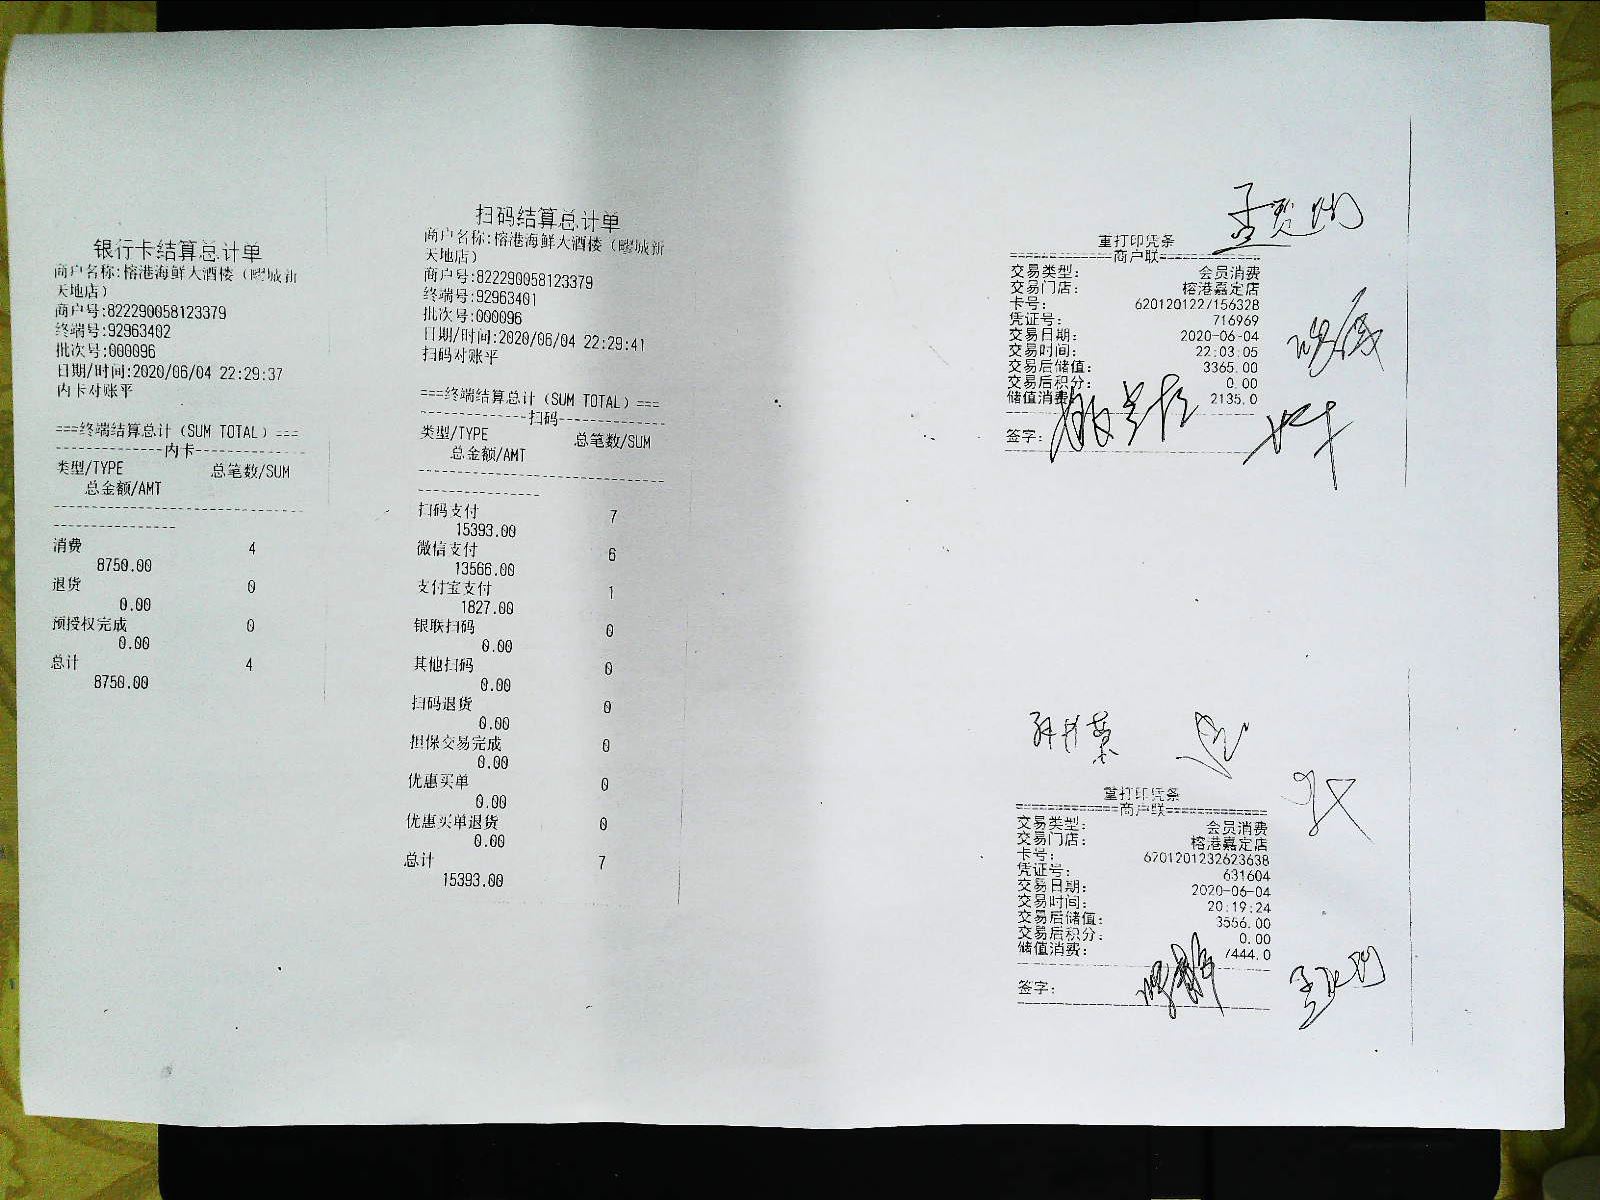 银行卡结算总计单
商户名称:榕港海鲜大酒楼（疁城新
天地店）
商户号:822290058123379
终端号:92963402
批次号:000096
日期/时间:2020/06/04 22:29:37
内卡对账平
===终端结算总计（SUM TOTAL）===
---------------内卡---------------
类型/TYPE 总笔数/SUM
总金额/AMT
消费 4
8750.00
退货 0
0.00
预授权完成 0
0.00
总计 4
8750.00
扫码结算总计单
商户名称:榕港海鲜大酒楼（疁城新
天地店）
商户号:822290058123379
终端号:92963401
批次号:000096
日期/时间:2020/06/04 22:29:41
扫码对账平
===终端结算总计（SUM TOTAL）===
---------------扫码---------------
类型/TYPE 总笔数/SUM
总金额/AMT
扫码支付 7
15393.00
微信支付 6
13566.00
支付宝支付 1
1827.00
银联扫码 0
0.00
其他扫码 0
0.00
扫码退货 0
0.00
担保交易完成 0
0.00
优惠买单 0
0.00
优惠买单退货 0
0.00
总计 7
15393.00
重打印凭条
=============商户联=============
交易类型: 会员消费
交易门店: 榕港嘉定店
卡号: 6201201227156328
凭证号: 716969
交易日期: 2020-06-04
交易时间: 22:03:05
交易后储值: 3365.00
交易后积分: 0.00
储值消费 2135.0
签字:
重打印凭条
=============商户联=============
交易类型: 会员消费
交易门店: 榕港嘉定店
卡号: 6201201232623638
凭证号: 631604
交易日期: 2020-06-04
交易时间: 20:19:24
交易后储值: 3556.00
交易后积分: 0.00
储值消费: 7444.0
签字: